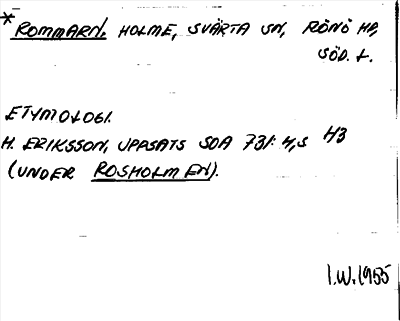 *ROMMARN, HOLME, SVÄRTA SN, RÖNÖ HD,
SÖD. L.
ETYMOLOGI.
H. ERIKSSON, UPPSATS SOA 731: 4, S 43
(UNDER ROSHOLMEN).
I.W. 1955